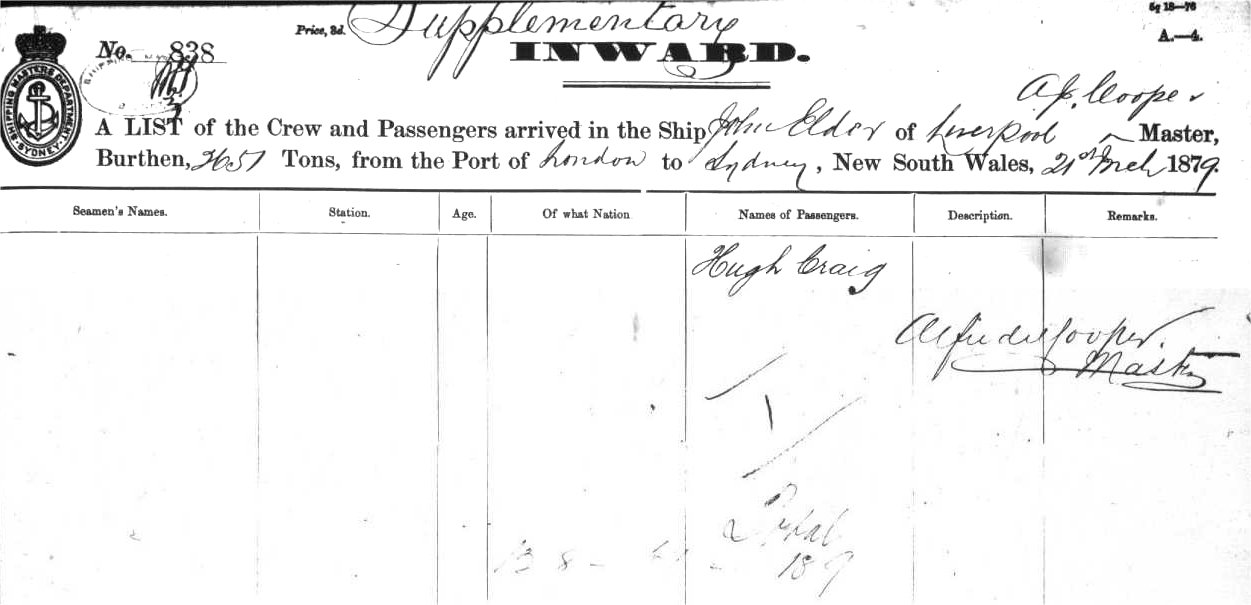 Supplementary
Price, 3d.
5q 18—76
A.—4.
No. 838
INWARD.
SHIPPING MASTERS DEPARTMENT SYDNEY
A. J. Cooper
A LIST of the Crew and Passengers arrived in the Ship John Elder of Liverpool Master,
Burthen, 2651 Tons, from the Port of London to Sydney, New South Wales, 21st Mch 1879.
Seamen's Names. Station. Age. Of what Nation Names of Passengers. Description. Remarks.
Hugh Craig
Alfred J Cooper.
Master
1
Total